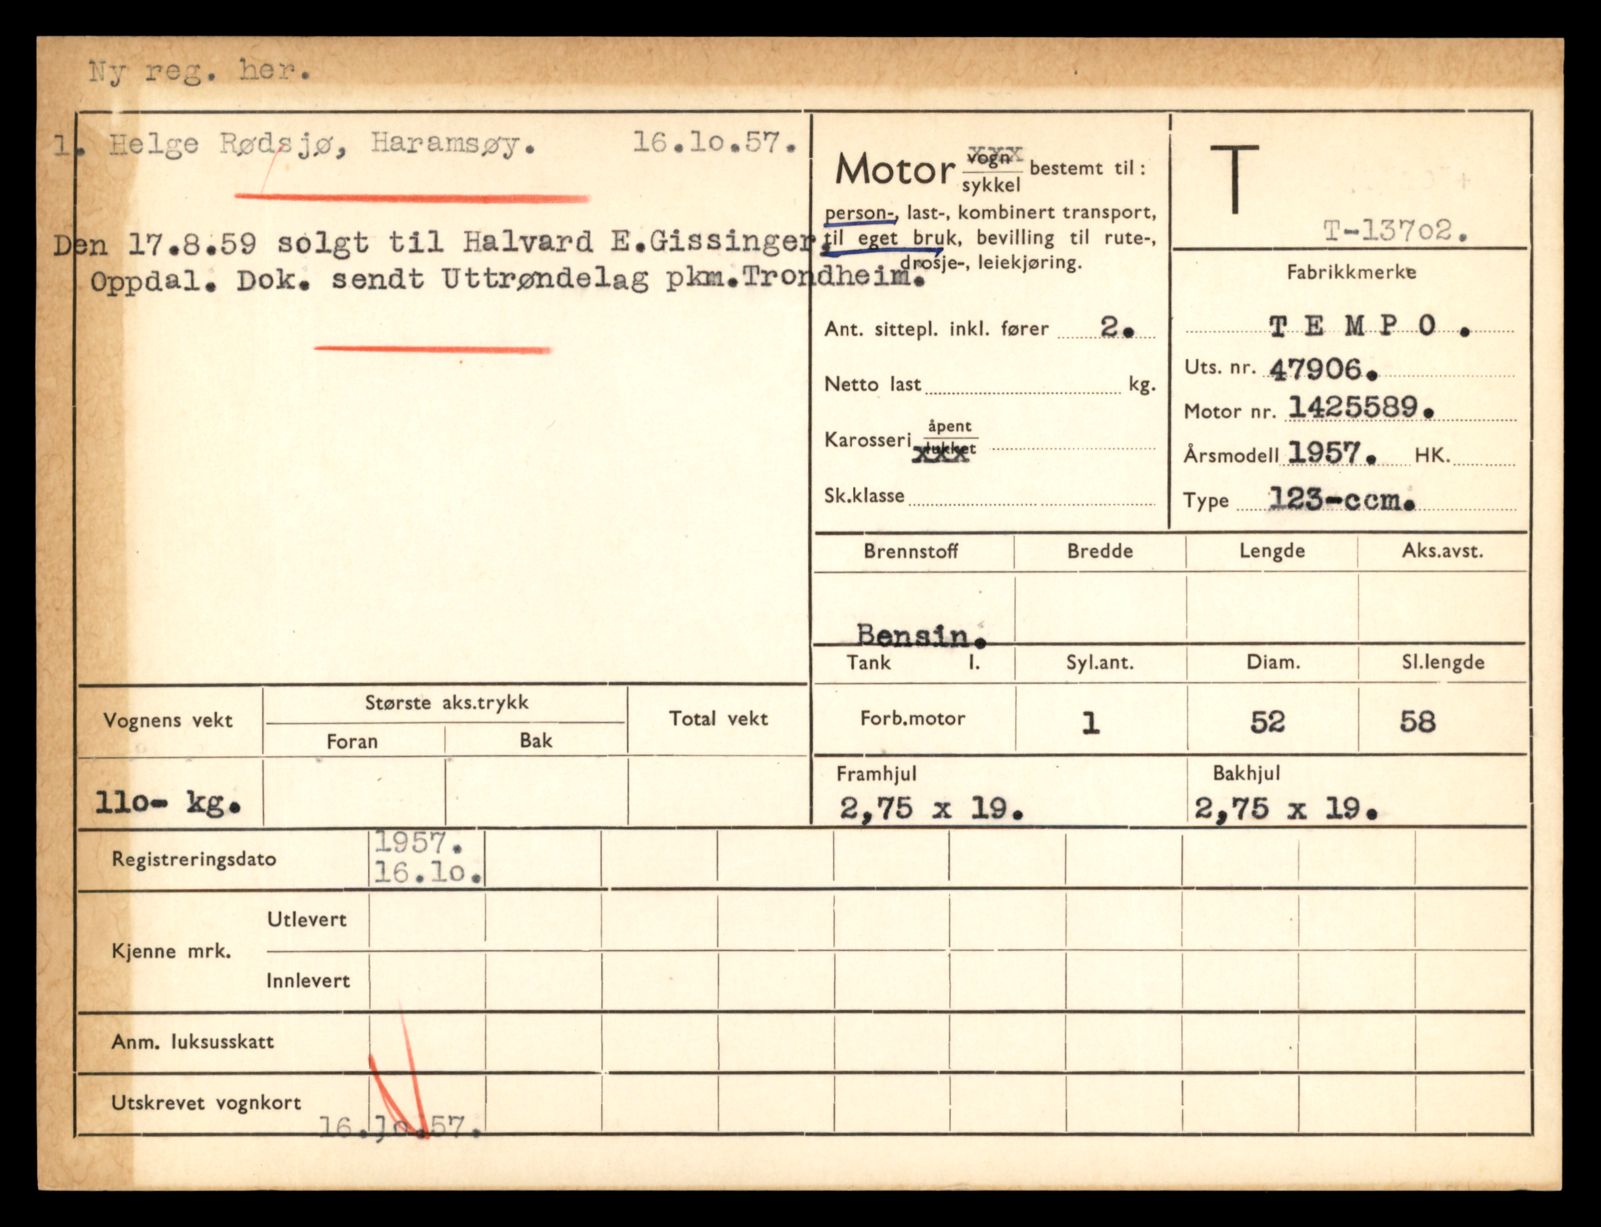 Ny reg. her.
1. Helge Rødsjø, Haramsøy. 16.lo.57.
Den 17.8.59 solgt til Halvard E.Gissinger,
Oppdal. Dok. sendt Uttrøndelag pkm.Trondheim.
Motor vogn xxx
sykkel bestemt til:
person-, last-, kombinert transport,
til eget bruk, bevilling til rute-,
drosje-, leiekjøring.
Ant. sittepl. inkl. fører 2.
Netto last kg.
Karosseri åpent
lukket xxx
Sk.klasse
T
T-137o2.
Fabrikkmerke
T E M P O .
Uts. nr. 47906.
Motor nr. 1425589.
Årsmodell 1957. HK.
Type 123-ccm.
Brennstoff Bredde Lengde Aks.avst.
Bensin.
Tank l. Syl.ant. Diam. Sl.lengde
Forb.motor 1 52 58
Vognens vekt Største aks.trykk Total vekt
Foran Bak
llo- kg.
Framhjul Bakhjul
2,75 x 19. 2,75 x 19.
Registreringsdato 1957.
16.lo.
Kjenne mrk. Utlevert
Innlevert
Anm. luksusskatt
Utskrevet vognkort
16.lo.57.